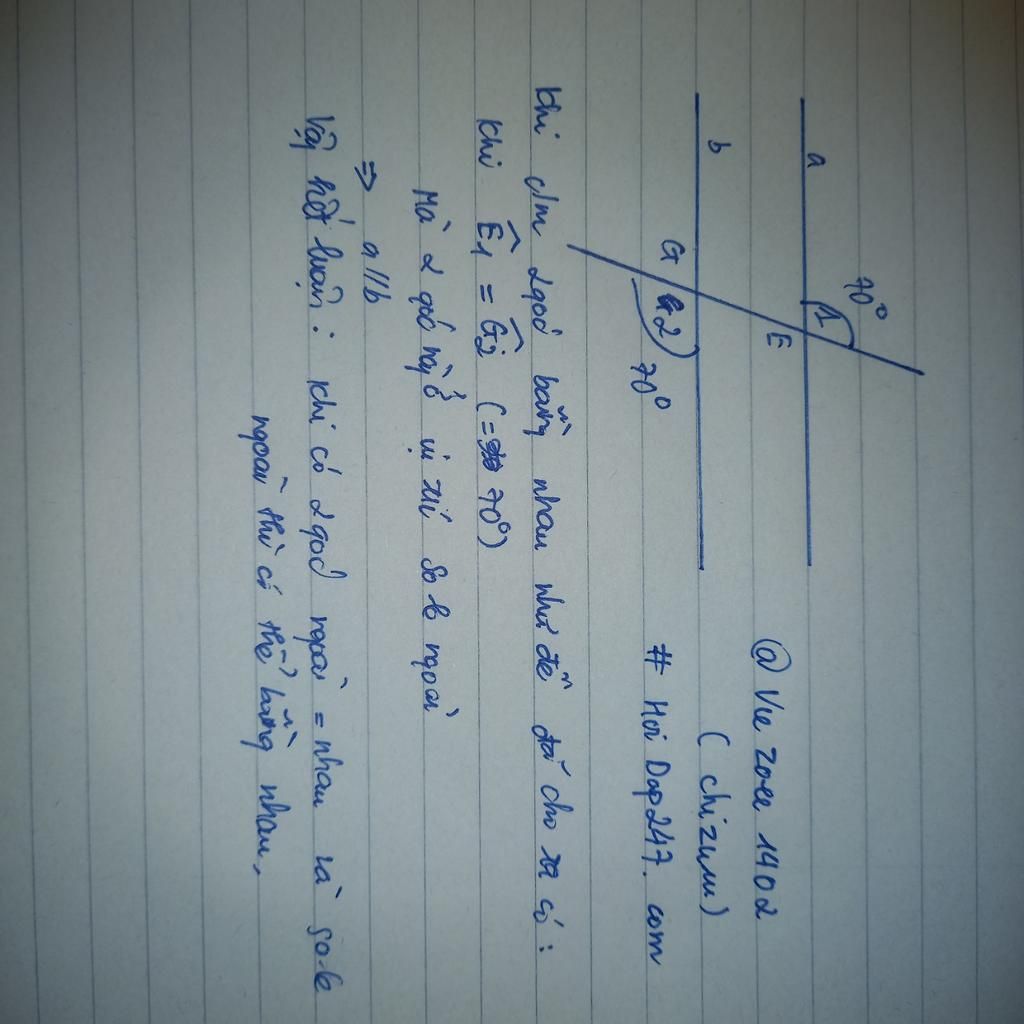 70°
1
a
E
b
G
G2
70°
@ Vie zoee 1402
(chizuu)
# Hoi Dap247.com
Khi c/m 2 góc bằng nhau như đề đã cho ta có:
Khi E1 = G2 (= 70°)
Mà 2 góc này ở vị trí so le ngoài
=> a//b
Vậy kết luận: khi có 2 góc ngoài = nhau và so le
ngoài thì có thể bằng nhau,